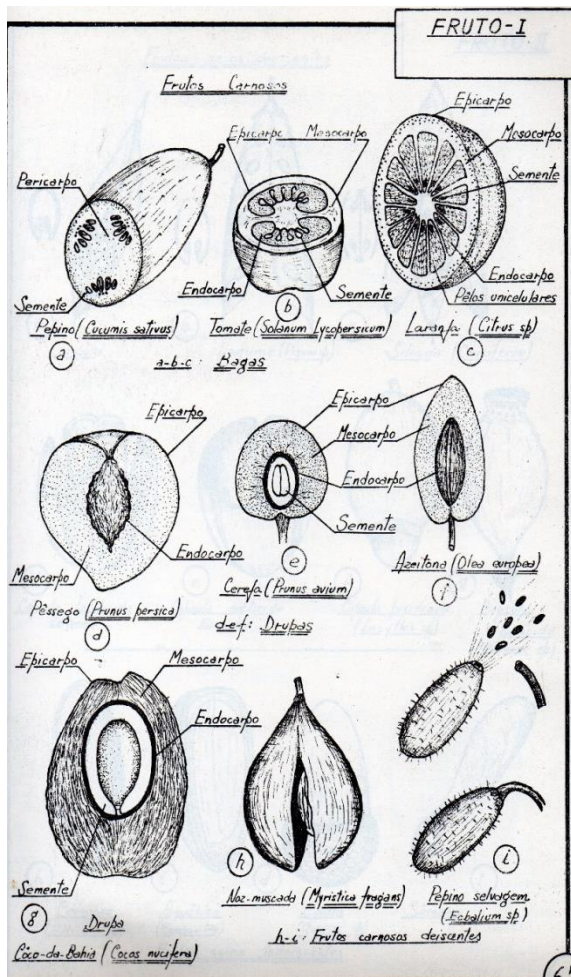 FRUTO-I
Frutos Carnosos
Pericarpo
Semente
Pepino (Cucumis sativus)
a
Epicarpo Mesocarpo
Endocarpo Semente
b
Tomate (Solanum Lycopersicum)
Epicarpo
Mesocarpo
Semente
Endocarpo
Pêlos unicelulares
Laranja (Citrus sp)
c
a-b-c Bagas
Epicarpo
Endocarpo
Mesocarpo
Pêssego (Prunus persica)
d
Epicarpo
Mesocarpo
Endocarpo
Semente
e
Cereja (Prunus avium)
Azeitona (Olea europea)
f
d-e-f: Drupas
Epicarpo Mesocarpo
Endocarpo
Semente
g
Drupa
Côco-da-Bahia (Cocos nucifera)
h
Noz-muscada (Myristica fragans)
i
Pepino selvagem
(Ecbalium sp)
h-i: Frutos carnosos deiscentes